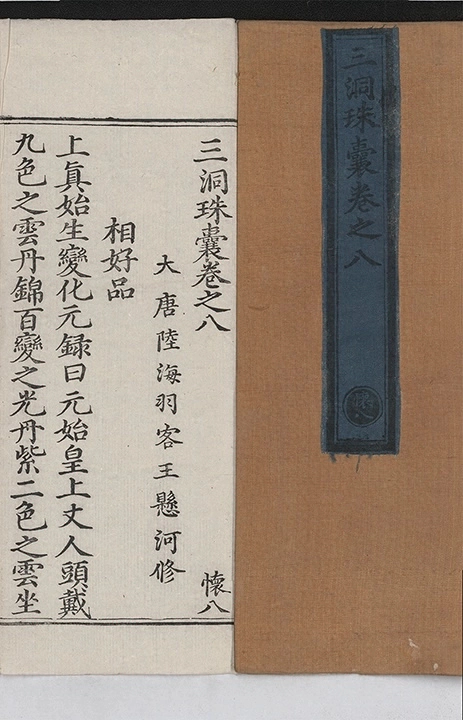 三洞珠囊卷之八
三洞珠囊卷之八
懷八
大唐陸海羽客王懸河修
相好品
上眞始生變化元録曰元始皇上丈人頭戴
九色之雲丹錦百變之光丹紫二色之雲坐